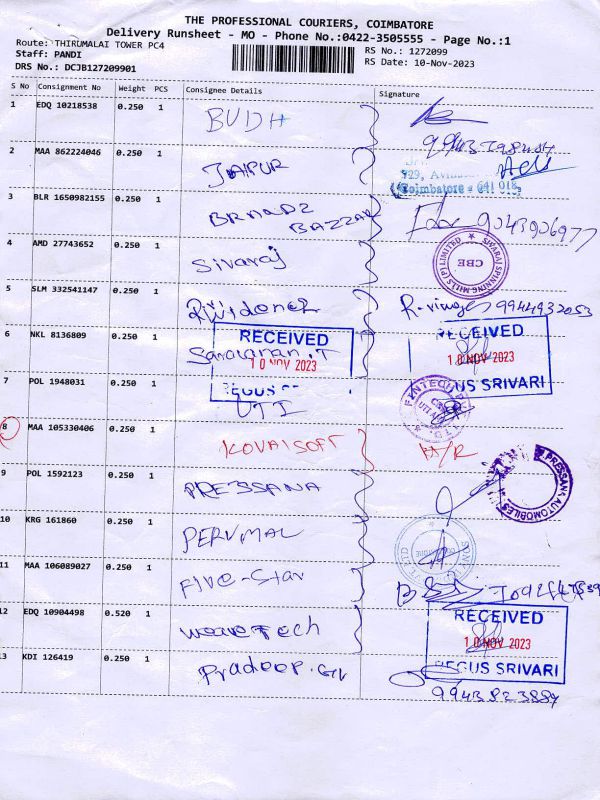 THE PROFESSIONAL COURIERS, COIMBATORE
Delivery Runsheet - MO - Phone No.:0422-3505555 - Page No.:1
Route: THIRUMALAI TOWER PC4
Staff: PANDI
DRS No.: DCJB127209901
RS No.: 1272099
RS Date: 10-Nov-2023
S No Consignment No Weight PCS Consignee Details Signature
1 EDQ 10218538 0.250 1 BUDH
2 MAA 862224046 0.250 1 JAIPUR
Coimbatore - 641 018.
3 BLR 1650982155 0.250 1 BRANDZ BAZZAR 9043906977
4 AMD 27743652 0.250 1 Sivaraj
SIVARAJ SPINNING MILLS (P) LIMITED CBE
5 SLM 332541147 0.250 1 9944932053
6 NKL 8136809 0.250 1 Saravanan.T
RECEIVED
10 NOV 2023
REGUS
RECEIVED
10 NOV 2023
REGUS SRIVARI
7 POL 1948031 0.250 1 UTI
8 MAA 105330406 0.250 1 KOVAISOFT
9 POL 1592123 0.250 1 PRESSANA
PRESSANA AUTOMOBILES
10 KRG 161860 0.250 1 PERUMAL
11 MAA 106089027 0.250 1 FIVE-Star
12 EDQ 10904498 0.520 1 wavetech
RECEIVED
10 NOV 2023
REGUS SRIVARI
13 KDI 126419 0.250 1 Pradeep.
9943823884